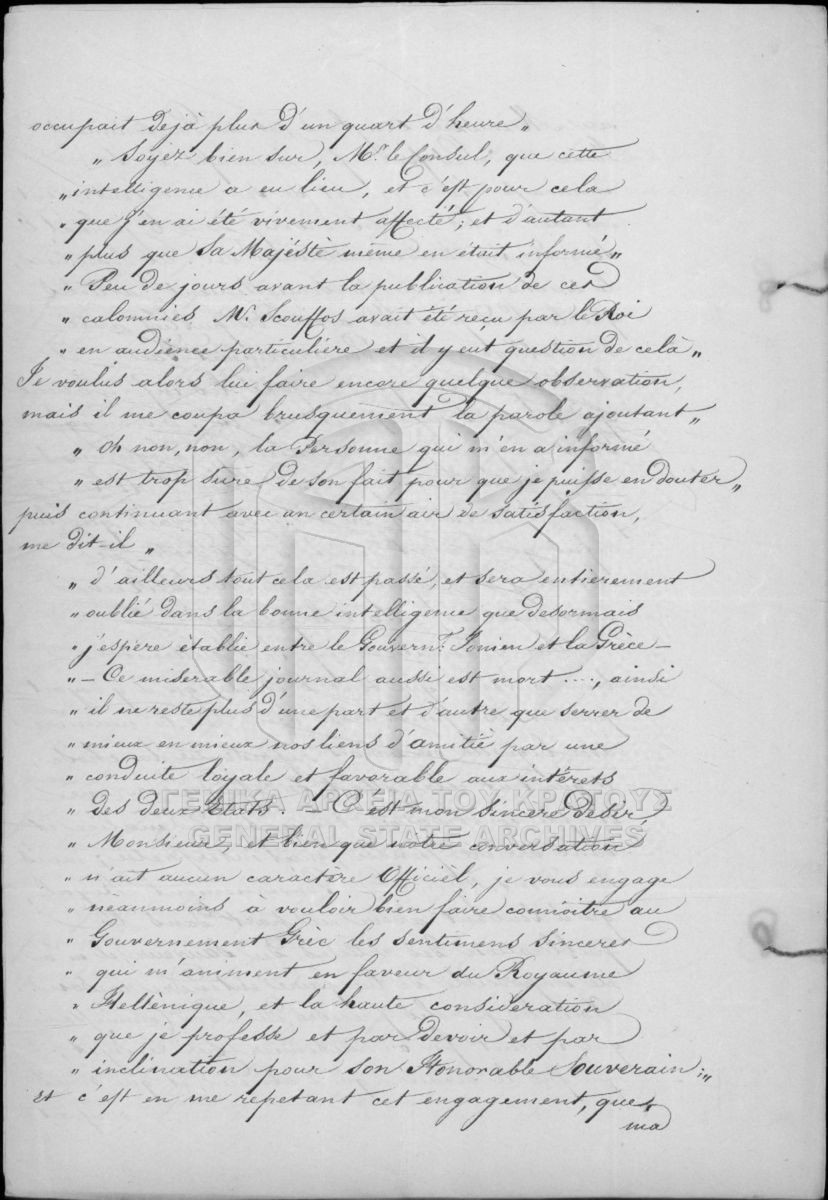 occupait dejà plus d'un quart d'heure„
„ Soyéz bien sur, Mr. le Consul, que cette
„ intelligence a eu lieu, et c'est pour cela
„ que j'en ai été vivement affecté; et d'autant
„ plus que Sa Majésté même en était informé„
„ Peu de jours avant la publication de ces
„ calomnies Mr. Scouffos avait été reçu par le Roi
„ en audience particulière et il y eut question de celà„
Je voulus alors lui faire encore quelque observation,
mais il me coupa brusquement la parole ajoutant„
„ Oh non, non, la Personne qui m'en a informé
„ est trop sure de son fait pour que je puisse en douter„
puis continuant avec un certain air de satisfaction,
me dit-il „
„ d'ailleurs tout cela est passé, et sera entierement
„ oublié dans la bonne intelligence que desormais
„ j'espere établie entre le Gouvernt. Ionien et la Grèce –
„ – Ce miserable journal aussi est mort ...., ainsi
„ il ne reste plus d'une part et d'autre que serrer de
„ mieux en mieux nos liens d'amitié par une
„ conduite loyale et favorable aux intérets
ΓΕΝΙΚΑ ΑΡΧΕΙΑ ΤΟΥ ΚΡΑΤΟΥΣ
„ des deux Etats. – C'est mon sincere desir,
GENERAL STATE ARCHIVES
„ Monsieur, et bien que notre conversation
„ n'ait aucun caractère Officièl, je vous engage
„ néanmoins à vouloir bien faire connoitre au
„ Gouvernement Grèc les sentimens sinceres
„ qui m'animent en faveur du Royaume
„ Hellènique, et la haute consideration
„ que je professe et par devoir et par
„ inclination pour son Honorable Souverain;„
Et c'est en me repetant cet engagement, que,
ma